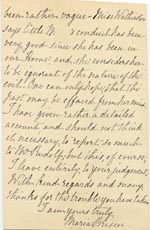 been rather vague – Miss Watherston
says little M's conduct has been
very good since she has been in
our Home, and she considers her
to be ignorant of the nature of the
evil. One can only hope that the
past may be effaced from her mind.
I have given rather a detailed
account and should not think
it necessary to report so much
to Mr Rudolf, but this of course,
I leave entirely to your judgment.
With kind regards and many
thanks for the trouble you have taken
I am yours truly
Maria Briscoe